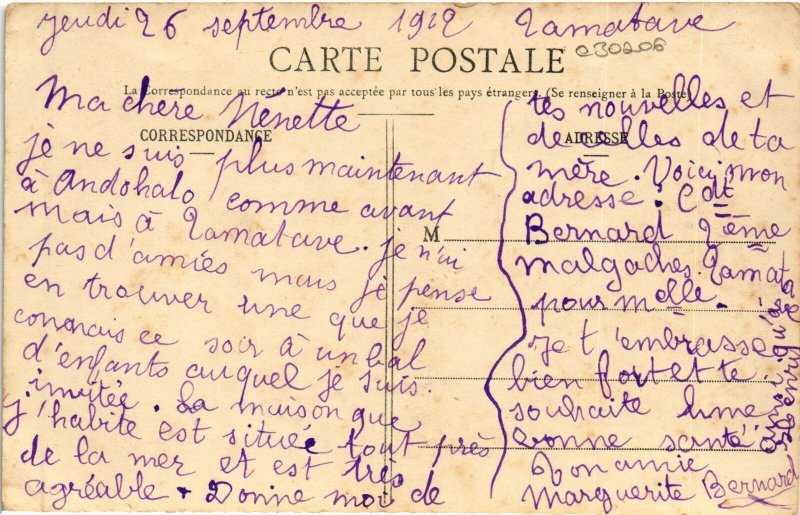 jeudi 26 septembre 1912 Tamatave
030206
CARTE POSTALE
La Correspondance au recto n'est pas acceptée par tous les pays étrangers. (Se renseigner à la Poste)
CORRESPONDANCE
Ma chère Nénette
je ne suis plus maintenant
à Andohalo comme avant
mais à Tamatave. je n'ai
pas d'amies mais je pense
en trouver une que je
connais ce soir à un bal
d'enfants auquel je suis
invitée. La maison que
j'habite est située tout près
de la mer et est très
agréable. Donne moi de
ADRESSE
M
tes nouvelles et
de celles de ta
mère. Voici mon
adresse: Cdt
Bernard 2ème
malgaches. Tamatave
pour melle.
Je t'embrasse
bien fort et te
souhaite une
bonne santé
ainsi qu'à
Henri
Ton amie
Marguerite Bernard